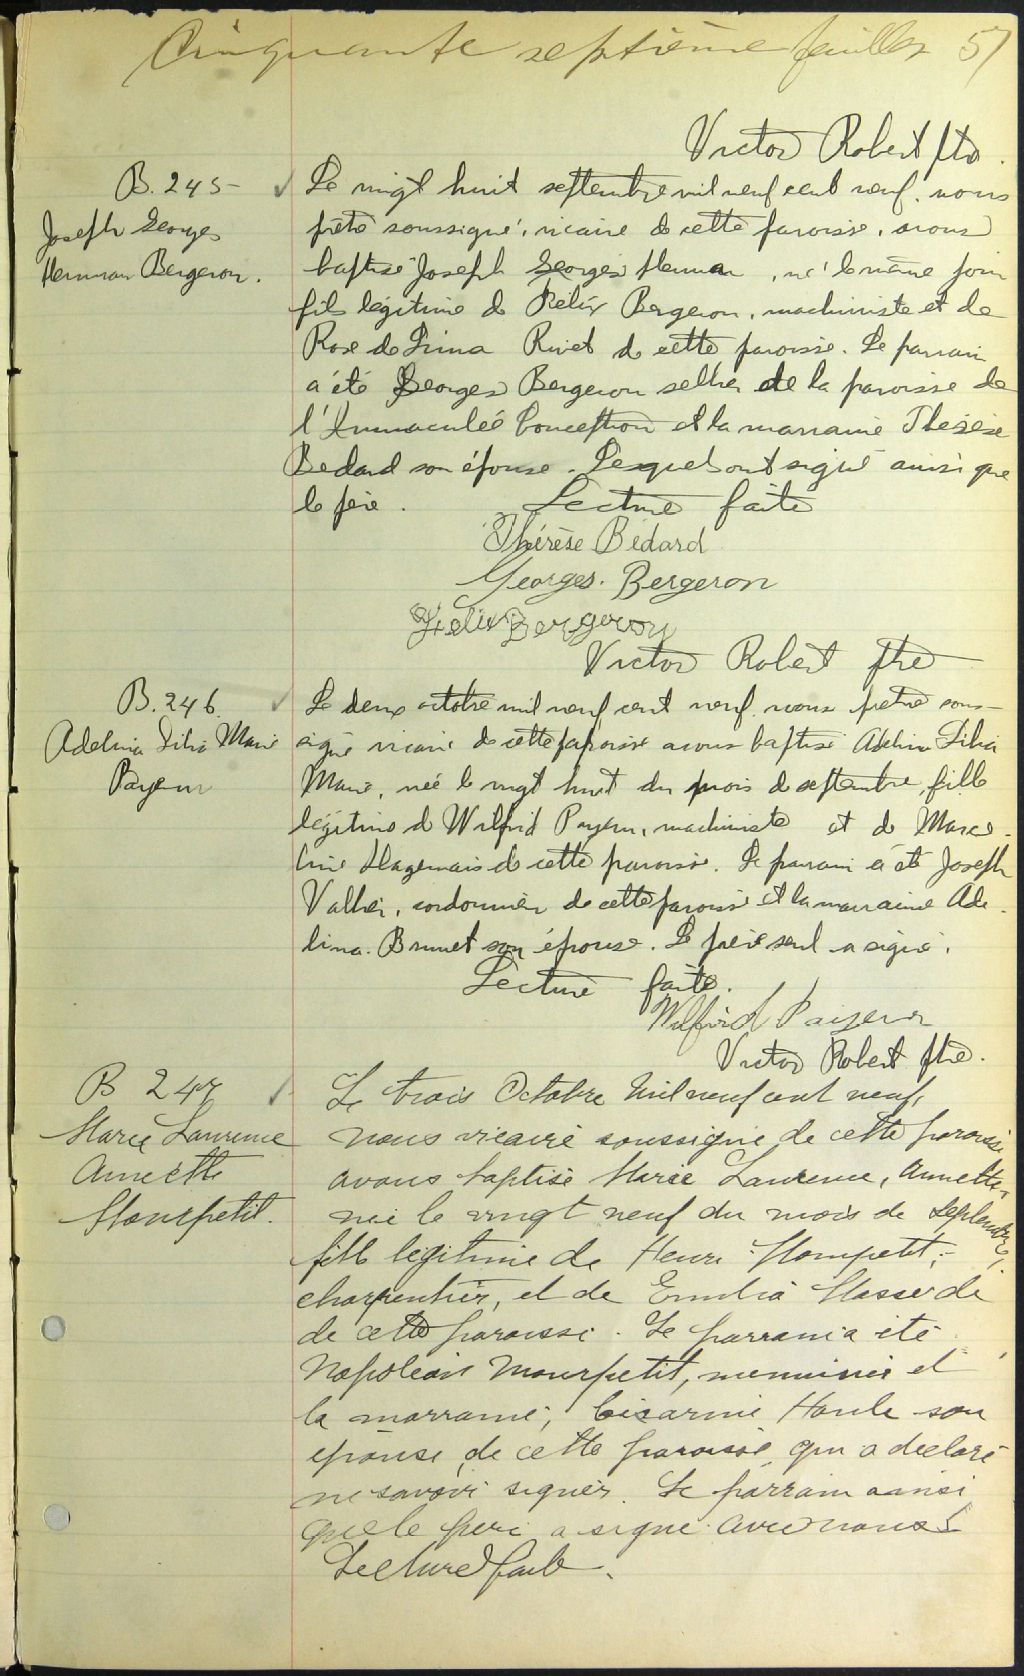 Cinquante septième feuillet 57
Victor Robert ptre.
B. 245
Joseph Georges
Herman Bergeron.
Le vingt huit septembre mil neuf cent neuf, nous
prêtre soussigné, vicaire de cette paroisse, avons
baptisé Joseph Georges Herman, né le même jour
fils légitime de Félix Bergeron, machiniste et de
Rose de Lima Rivet de cette paroisse. Le parrain
a été Georges Bergeron sellier de la paroisse de
l'Immaculée Conception et la marraine Thérèse
Bedard son épouse. Lesquels ont signé ainsi que
le père. Lecture faite
Thérèse Bédard
Georges. Bergeron
Felix Bergeron
Victor Robert ptre
B. 246.
Adelina Lilia Marie
Payeur
Le deux octobre mil neuf cent neuf, nous prêtre sous-
signé vicaire de cette paroisse avons baptisé Adelina Lilia
Marie, née le vingt huit du mois de septembre, fille
légitime de Wilfrid Payeur, machiniste et de Marce-
line Dagenais de cette paroisse. Le parrain a été Joseph
Vallier, cordonnier de cette paroisse et la marraine Ade-
lina Brunet son épouse. Le père seul a signé.
Lecture faite.
Wilfrid Payeur
Victor Robert ptre.
B 247
Marie Laurence
Annette
Monpetit.
Le trois Octobre Mil neuf cent neuf,
nous vicaire soussigné de cette paroisse
avons baptisé Marie Laurence, Annette,
née le vingt neuf du mois de Septembre,
fille legitime de Henri Monpetit,
charpentier, et de Emilia Masse de
de cette paroisse. Le parrain a été
Napoléon Monpetit, menuisier et
la marraine, Houle son
épouse, de cette paroisse, qui a declaré
ne savoir signer. Le parrain ainsi
que le père a signé avec nous.
Lecture faite.